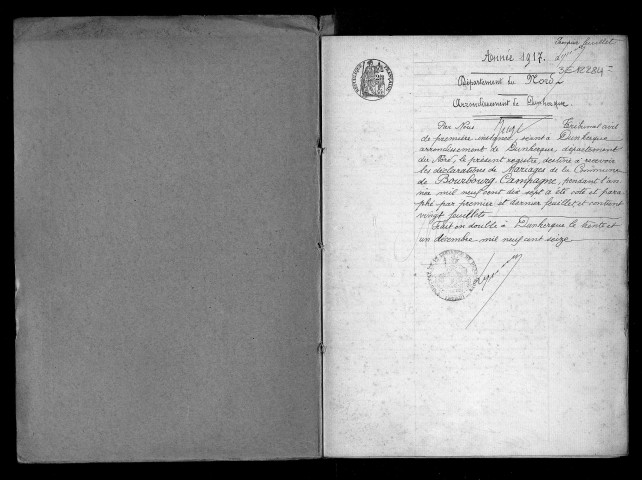 Premier feuillet
Année 1917.
3E 12284
Département du Nord
Arrondissement de Dunkerque.
Par Nous Juge Tribunal civil
de première instance, séant à Dunkerque
arrondissement de Dunkerque, département
du Nord, le présent registre, destiné à recevoir
les déclarations de Mariages de la Commune
de Bourbourg Campagne, pendant l'an
née mil neuf cent dix sept a été coté et para
phé par premier et dernier feuillet et contient
vingt feuillets
Fait en double à Dunkerque le trente et
un décembre mil neuf cent seize